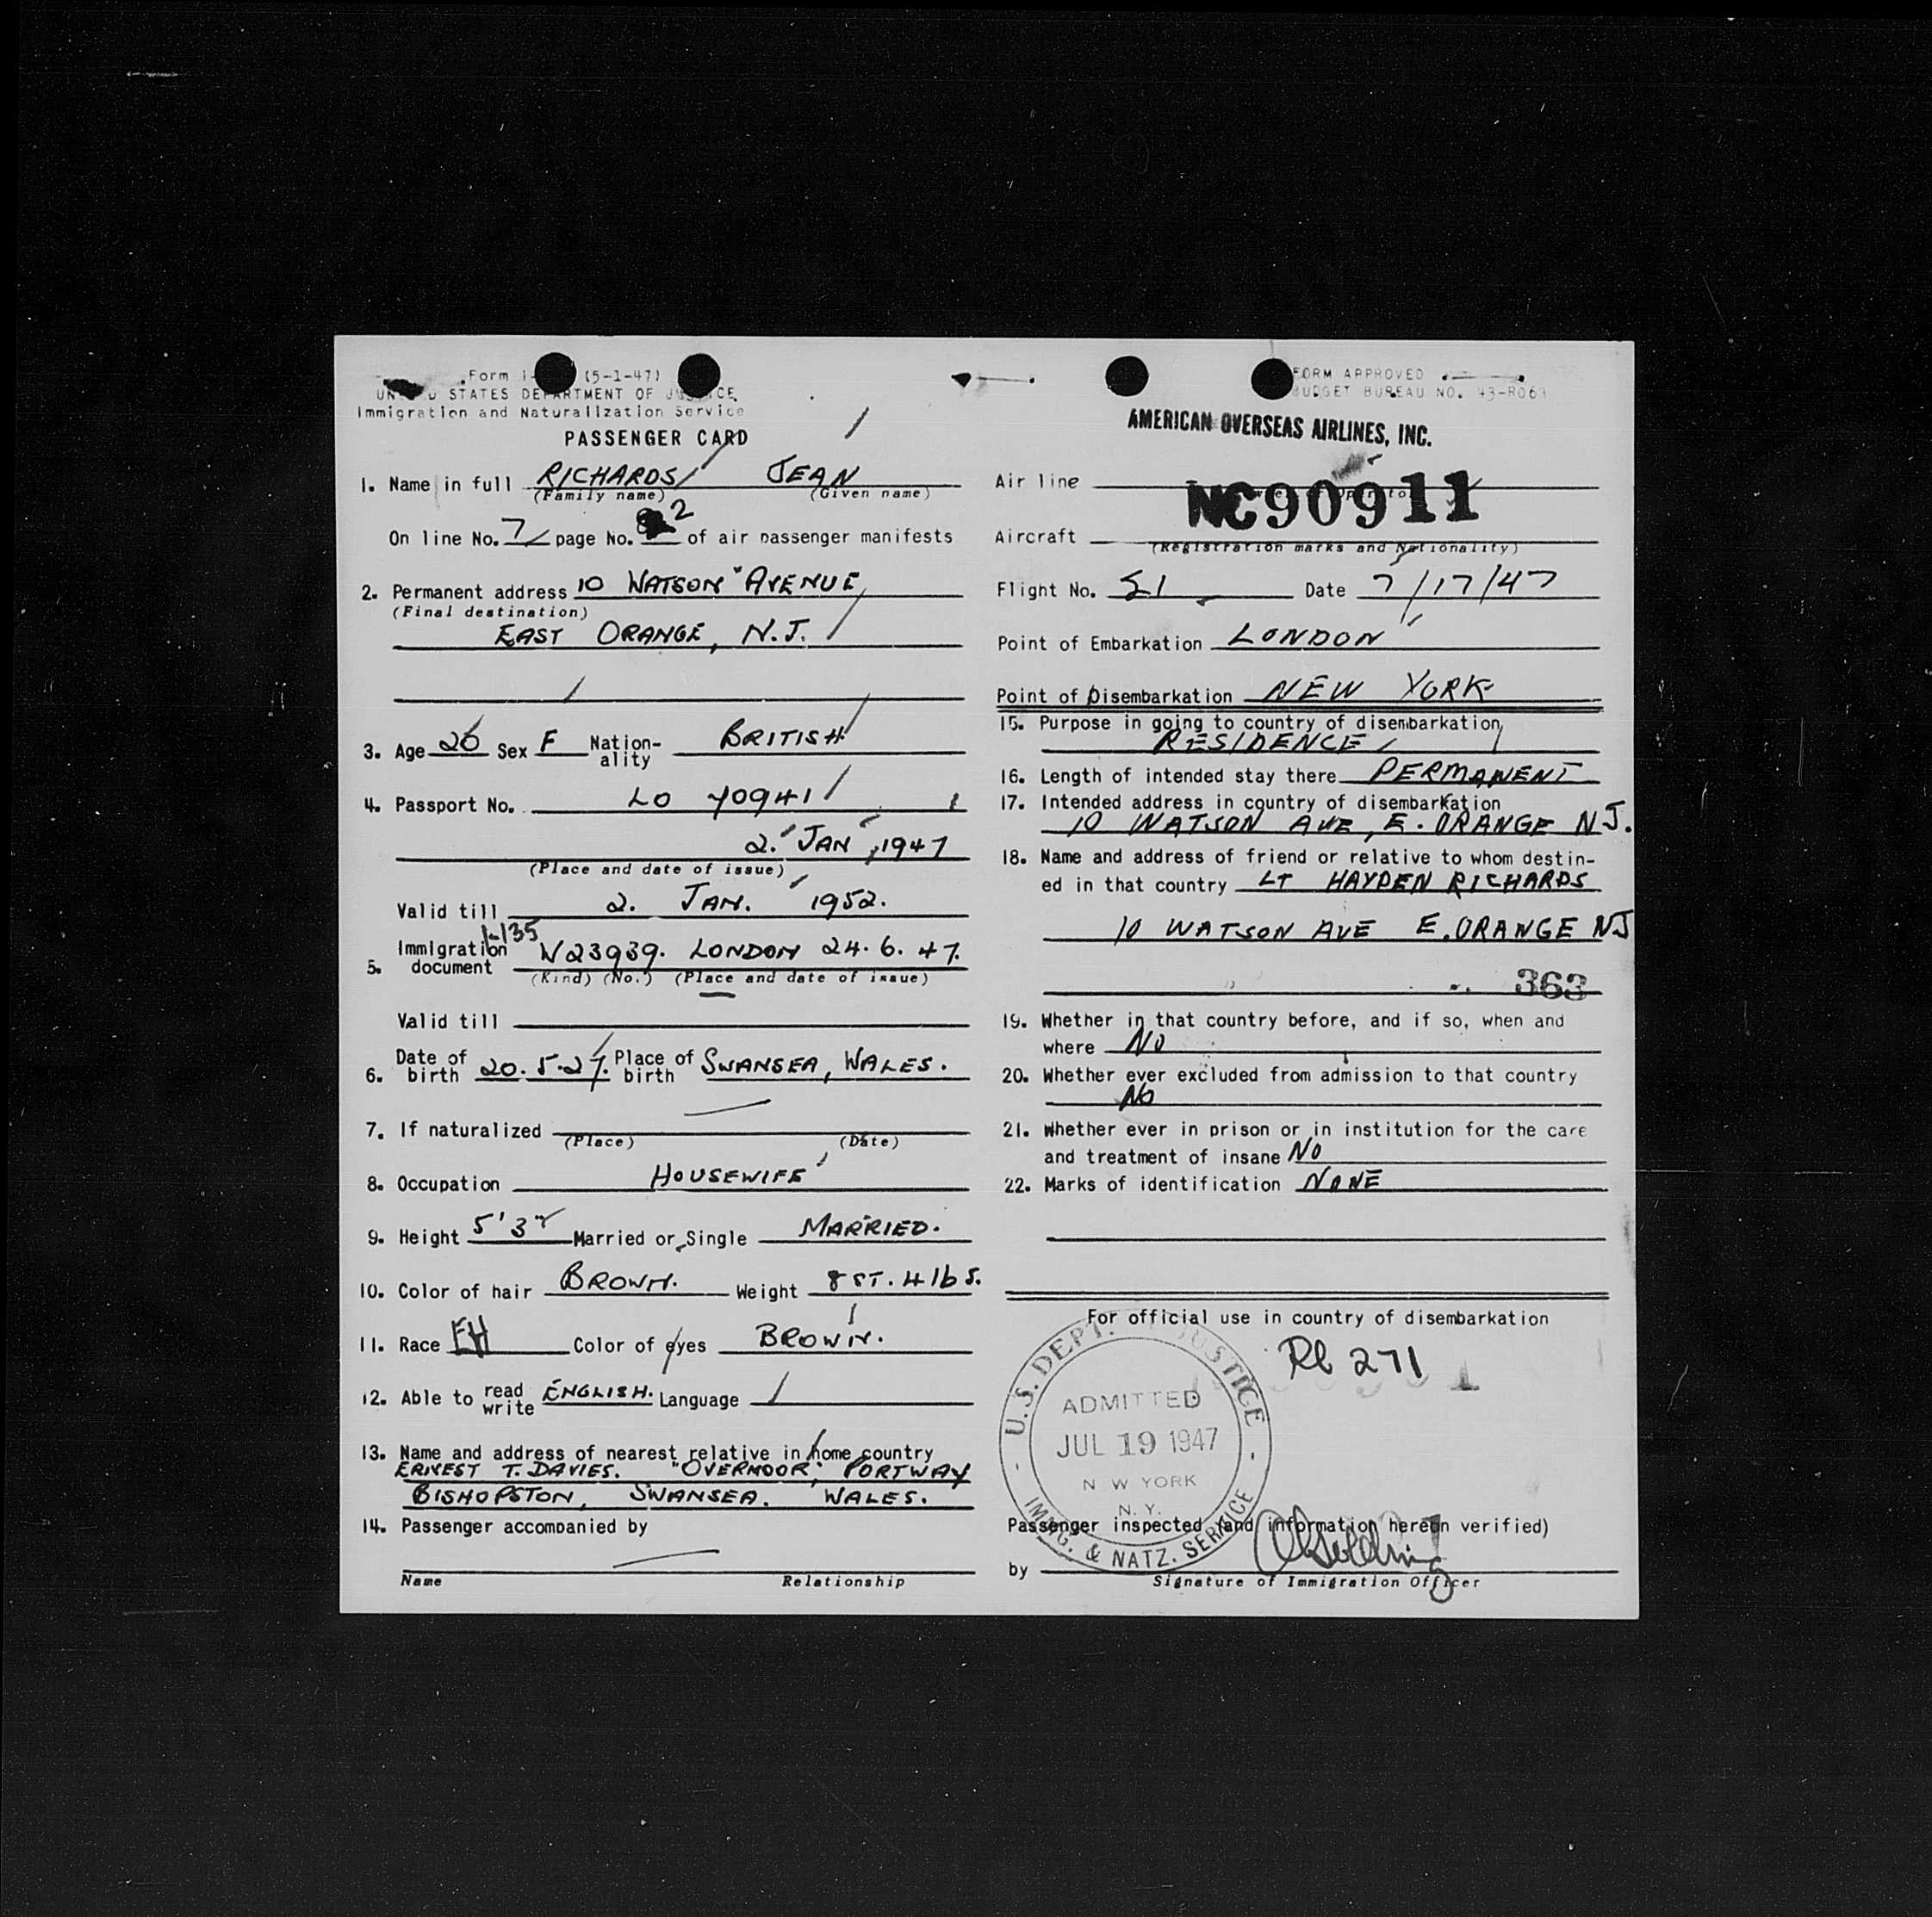 Form I- (5-1-47)
UNITED STATES DEPARTMENT OF JUSTICE
Immigration and Naturalization Service
PASSENGER CARD
1. Name in full RICHARDS JEAN
(Family name) (Given name)
On line No. 7 page No. 2 of air passenger manifests
2. Permanent address 10 WATSON AVENUE
(Final destination)
EAST ORANGE, N.J.
3. Age 20 Sex F Nation-ality BRITISH
4. Passport No. LO 70941
2. JAN, 1947
(Place and date of issue)
Valid till 2. JAN. 1952.
I-135
5. Immigration document V23939. LONDON 24.6.47.
(Kind) (No.) (Place and date of issue)
Valid till
6. Date of birth 20.5.27. Place of birth SWANSEA, WALES.
7. If naturalized
(Place) (Date)
8. Occupation HOUSEWIFE
9. Height 5'3" Married or Single MARRIED.
10. Color of hair BROWN. Weight 8 ST. 4 lbs.
11. Race EH Color of eyes BROWN.
12. Able to read write ENGLISH. Language
13. Name and address of nearest relative in home country
ERNEST T. DAVIES. "OVERMOOR", PORTWAY
BISHOPSTON, SWANSEA. WALES.
14. Passenger accompanied by
Name Relationship
FORM APPROVED
BUDGET BUREAU NO. 43-R063
AMERICAN OVERSEAS AIRLINES, INC.
Air line
NC90911
Aircraft
(Registration marks and Nationality)
Flight No. 51 Date 7/17/47
Point of Embarkation LONDON
Point of Disembarkation NEW YORK
15. Purpose in going to country of disembarkation
RESIDENCE
16. Length of intended stay there PERMANENT
17. Intended address in country of disembarkation
10 WATSON AVE, E. ORANGE N.J.
18. Name and address of friend or relative to whom destin-
ed in that country LT HAYDEN RICHARDS
10 WATSON AVE E. ORANGE NJ
363
19. Whether in that country before, and if so, when and
where NO
20. Whether ever excluded from admission to that country
NO
21. Whether ever in prison or in institution for the care
and treatment of insane NO
22. Marks of identification NONE
For official use in country of disembarkation
271
U.S. DEPT. JUSTICE
ADMITTED
JUL 19 1947
N W YORK
N.Y.
IMMG. & NATZ. SERVICE
Passenger inspected (and information hereon verified)
by
Signature of Immigration Officer